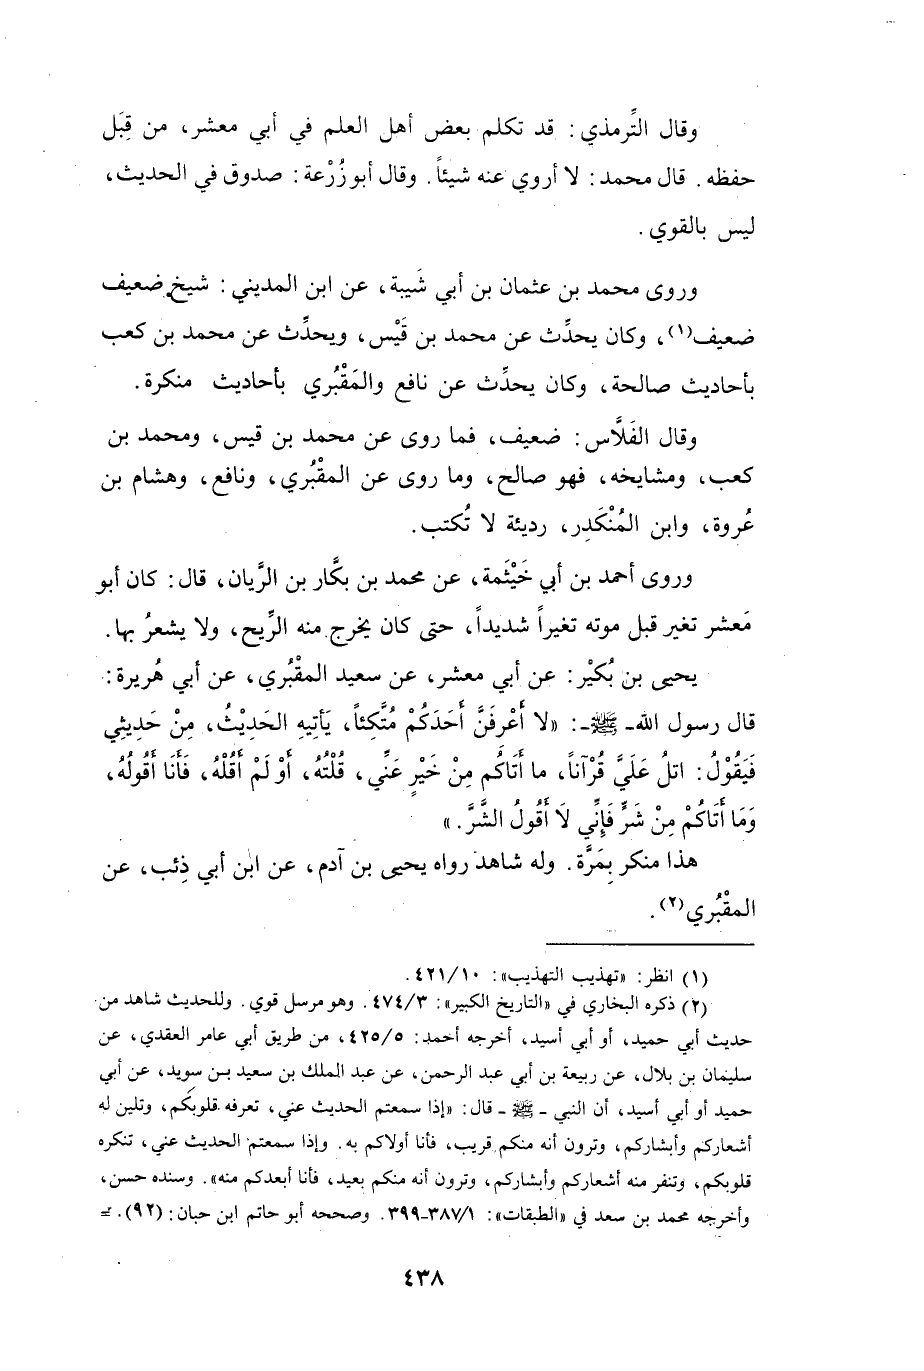 وقال التِّرمذي: قد تكلم بعض أهل العلم في أبي معشر، من قِبَل
حفظه. قال محمد: لا أروي عنه شيئاً. وقال أبو زُرْعة: صدوق في الحديث،
ليس بالقوي.
وروى محمد بن عثمان بن أبي شَيبة، عن ابن المديني: شيخ ضعيف
ضعيف(١)، وكان يحدِّث عن محمد بن قَيْس، ويحدِّث عن محمد بن كعب
بأحاديث صالحة، وكان يحدِّث عن نافع والمَقْبُري بأحاديث منكرة.
وقال الفَلَّاس: ضعيف، فما روى عن محمد بن قيس، ومحمد بن
كعب، ومشايخه، فهو صالح، وما روى عن المقْبُري، ونافع، وهشام بن
عُروة، وابن المُنْكَدر، رديئة لا تُكتب.
وروى أحمد بن أبي خَيْثَمة، عن محمد بن بكَّار بن الرَّيان، قال: كان أبو
مَعشر تغير قبل موته تغيراً شديداً، حتى كان يخرج منه الرِّيح، ولا يشعرُ بها.
يحيى بن بُكَيْر: عن أبي معشر، عن سعيد المقْبُري، عن أبي هُريرة:
قال رسول الله ـ ﷺ ـ: «لا أَعْرفَنَّ أَحَدَكُمْ مُتَّكِئاً، يَأتيهِ الحَدِيْثُ، مِنْ حَدِيثي
فَيَقُوْلُ: اتلُ عَلَيَّ قُرْآناً، ما أَتَاكُم مِنْ خَيْرٍ عَنِّي، قُلْتُهُ، أَوْ لَمْ أَقُلْهُ، فَأَنَا أَقُولُهُ،
وَمَا أَتَاكُمْ مِنْ شَرٍّ فَإِنِّي لَا أَقُولُ الشَّرَّ.»
هذا منكر بِمَرَّة. وله شاهد رواه يحيى بن آدم، عن ابن أبي ذِئب، عن
المقْبُري(٢).
(١) انظر: «تهذيب التهذيب»: ٤٢١/١٠.
(٢) ذكره البخاري في «التاريخ الكبير»: ٤٧٤/٣. وهو مرسل قوي. وللحديث شاهد من
حديث أبي حميد، أو أبي أسيد، أخرجه أحمد: ٤٢٥/٥، من طريق أبي عامر العقدي، عن
سليمان بن بلال، عن ربيعة بن أبي عبد الرحمن، عن عبد الملك بن سعيد بن سويد، عن أبي
حميد أو أبي أسيد، أن النبي ـ ﷺ ـ قال: «إذا سمعتم الحديث عني، تعرفه قلوبكم، وتلين له
أشعاركم وأبشاركم، وترون أنه منكم قريب، فأنا أولاكم به. وإذا سمعتم الحديث عني، تنكره
قلوبكم، وتنفر منه أشعاركم وأبشاركم، وترون أنه منكم بعيد، فأنا أبعدكم منه». وسنده حسن،
وأخرجه محمد بن سعد في «الطبقات»: ٣٨٧/١-٣٩٩. وصححه أبو حاتم ابن حبان: (٩٢). =
٤٣٨